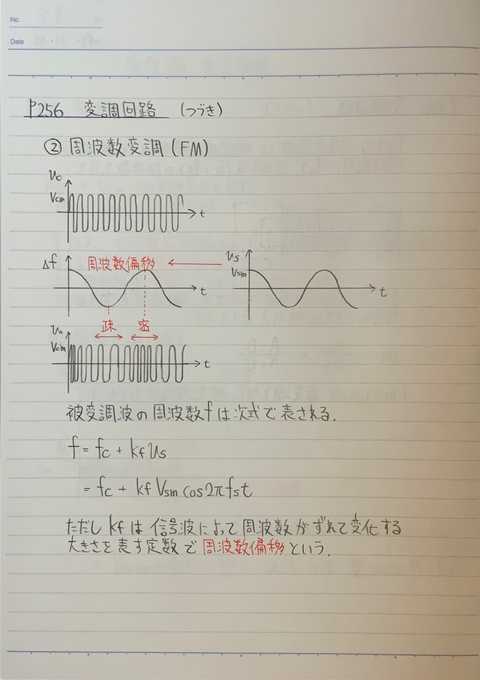 No.
Date
P256 変調回路 (つづき)
② 周波数変調 (FM)
Vcm
t
Δf 周波数偏移
t
vs
Vsm
t
疎 密
Vcm
t
被変調波の周波数fは次式で表される.
f = fc + kf vs
= fc + kf Vsm cos 2π fs t
ただし kf は 信号波によって周波数がずれて変化する
大きさを表す定数で 周波数偏移 という.